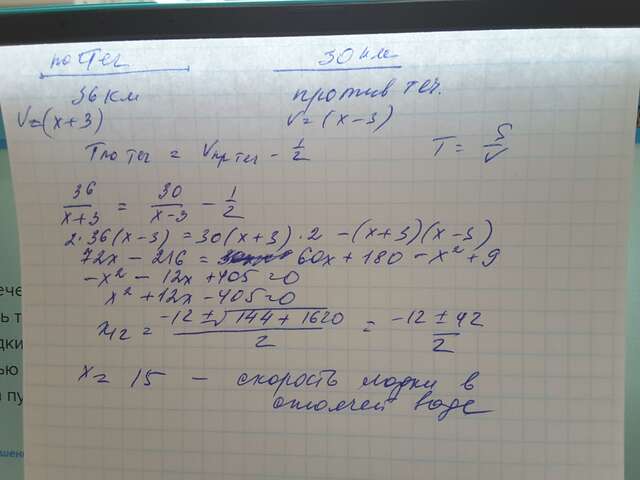 по теч
30 км
36 км
против теч.
V=(x+3)
V=(x-3)
Tпо теч = Vпр теч - 1/2
T = S/V
36/(x+3) = 30/(x-3) - 1/2
2·36(x-3) = 30(x+3)·2 -(x+3)(x-3)
72x - 216 = 60x + 180 - x² + 9
-x² - 12x + 405 = 0
x² + 12x - 405 = 0
x12 = (-12 ± √(144 + 1620))/2 = (-12 ± 42)/2
x = 15 - скорость лодки в
стоячей воде
ече
ь т
дки
ью
пу
шен